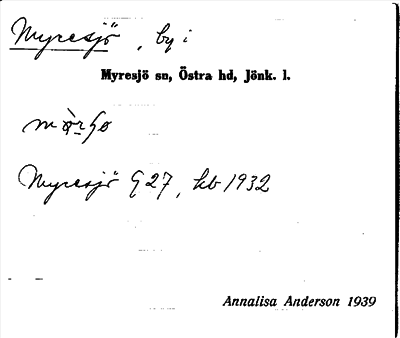 Myresjö, by i
Myresjö sn, Östra hd, Jönk. l.
Myresjö G 27, kb 1932
Annalisa Anderson 1939